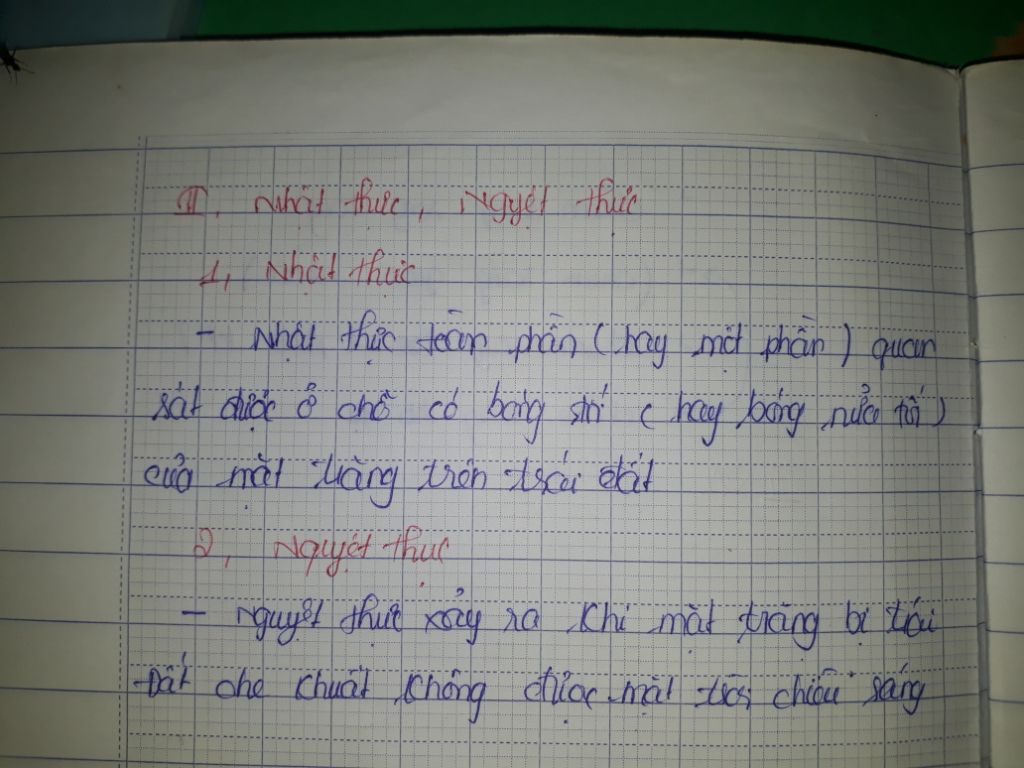 II, Nhật thực, Ngyệt thực
1, Nhật thực
- Nhật thực toàn phần (hay một phần) quan
sát được ở chỗ có bóng (hay bóng nửa tối)
của mặt trăng trên trái đất
2, Nguyệt thực
- Nguyệt thực xảy ra khi mặt trăng bị trái
Đất che khuất không được mặt trời chiếu sáng